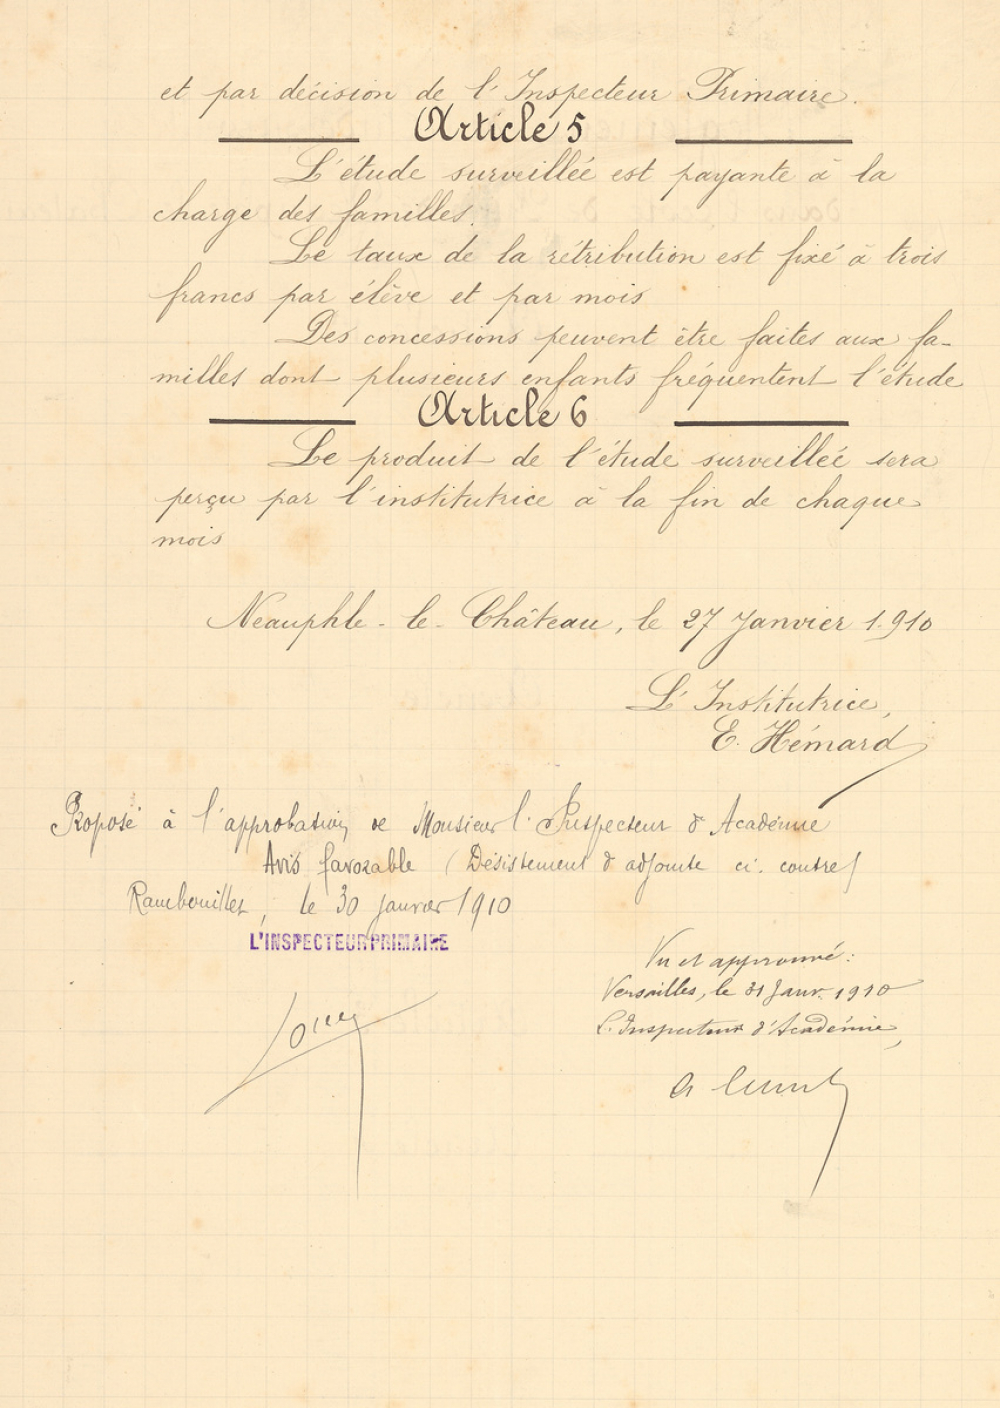 et par décision de l'Inspecteur Primaire.
Article 5
L'étude surveillée est payante à la
charge des familles.
Le taux de la rétribution est fixé à trois
francs par élève et par mois
Des concessions peuvent être faites aux fa-
milles dont plusieurs enfants fréquentent l'étude
Article 6
Le produit de l'étude surveillée sera
perçu par l'institutrice à la fin de chaque
mois
Neauphle-le-Château, le 27 Janvier 1910
L'Institutrice,
E. Hémard
Proposé à l'approbation de Monsieur l'Inspecteur d'Académie
Avis favorable (Désistement d'adjointe ci-contre)
Rambouillet, le 30 janvier 1910
L'INSPECTEUR PRIMAIRE
Vu et approuvé :
Versailles, le 31 Janv. 1910
L'Inspecteur d'Académie,